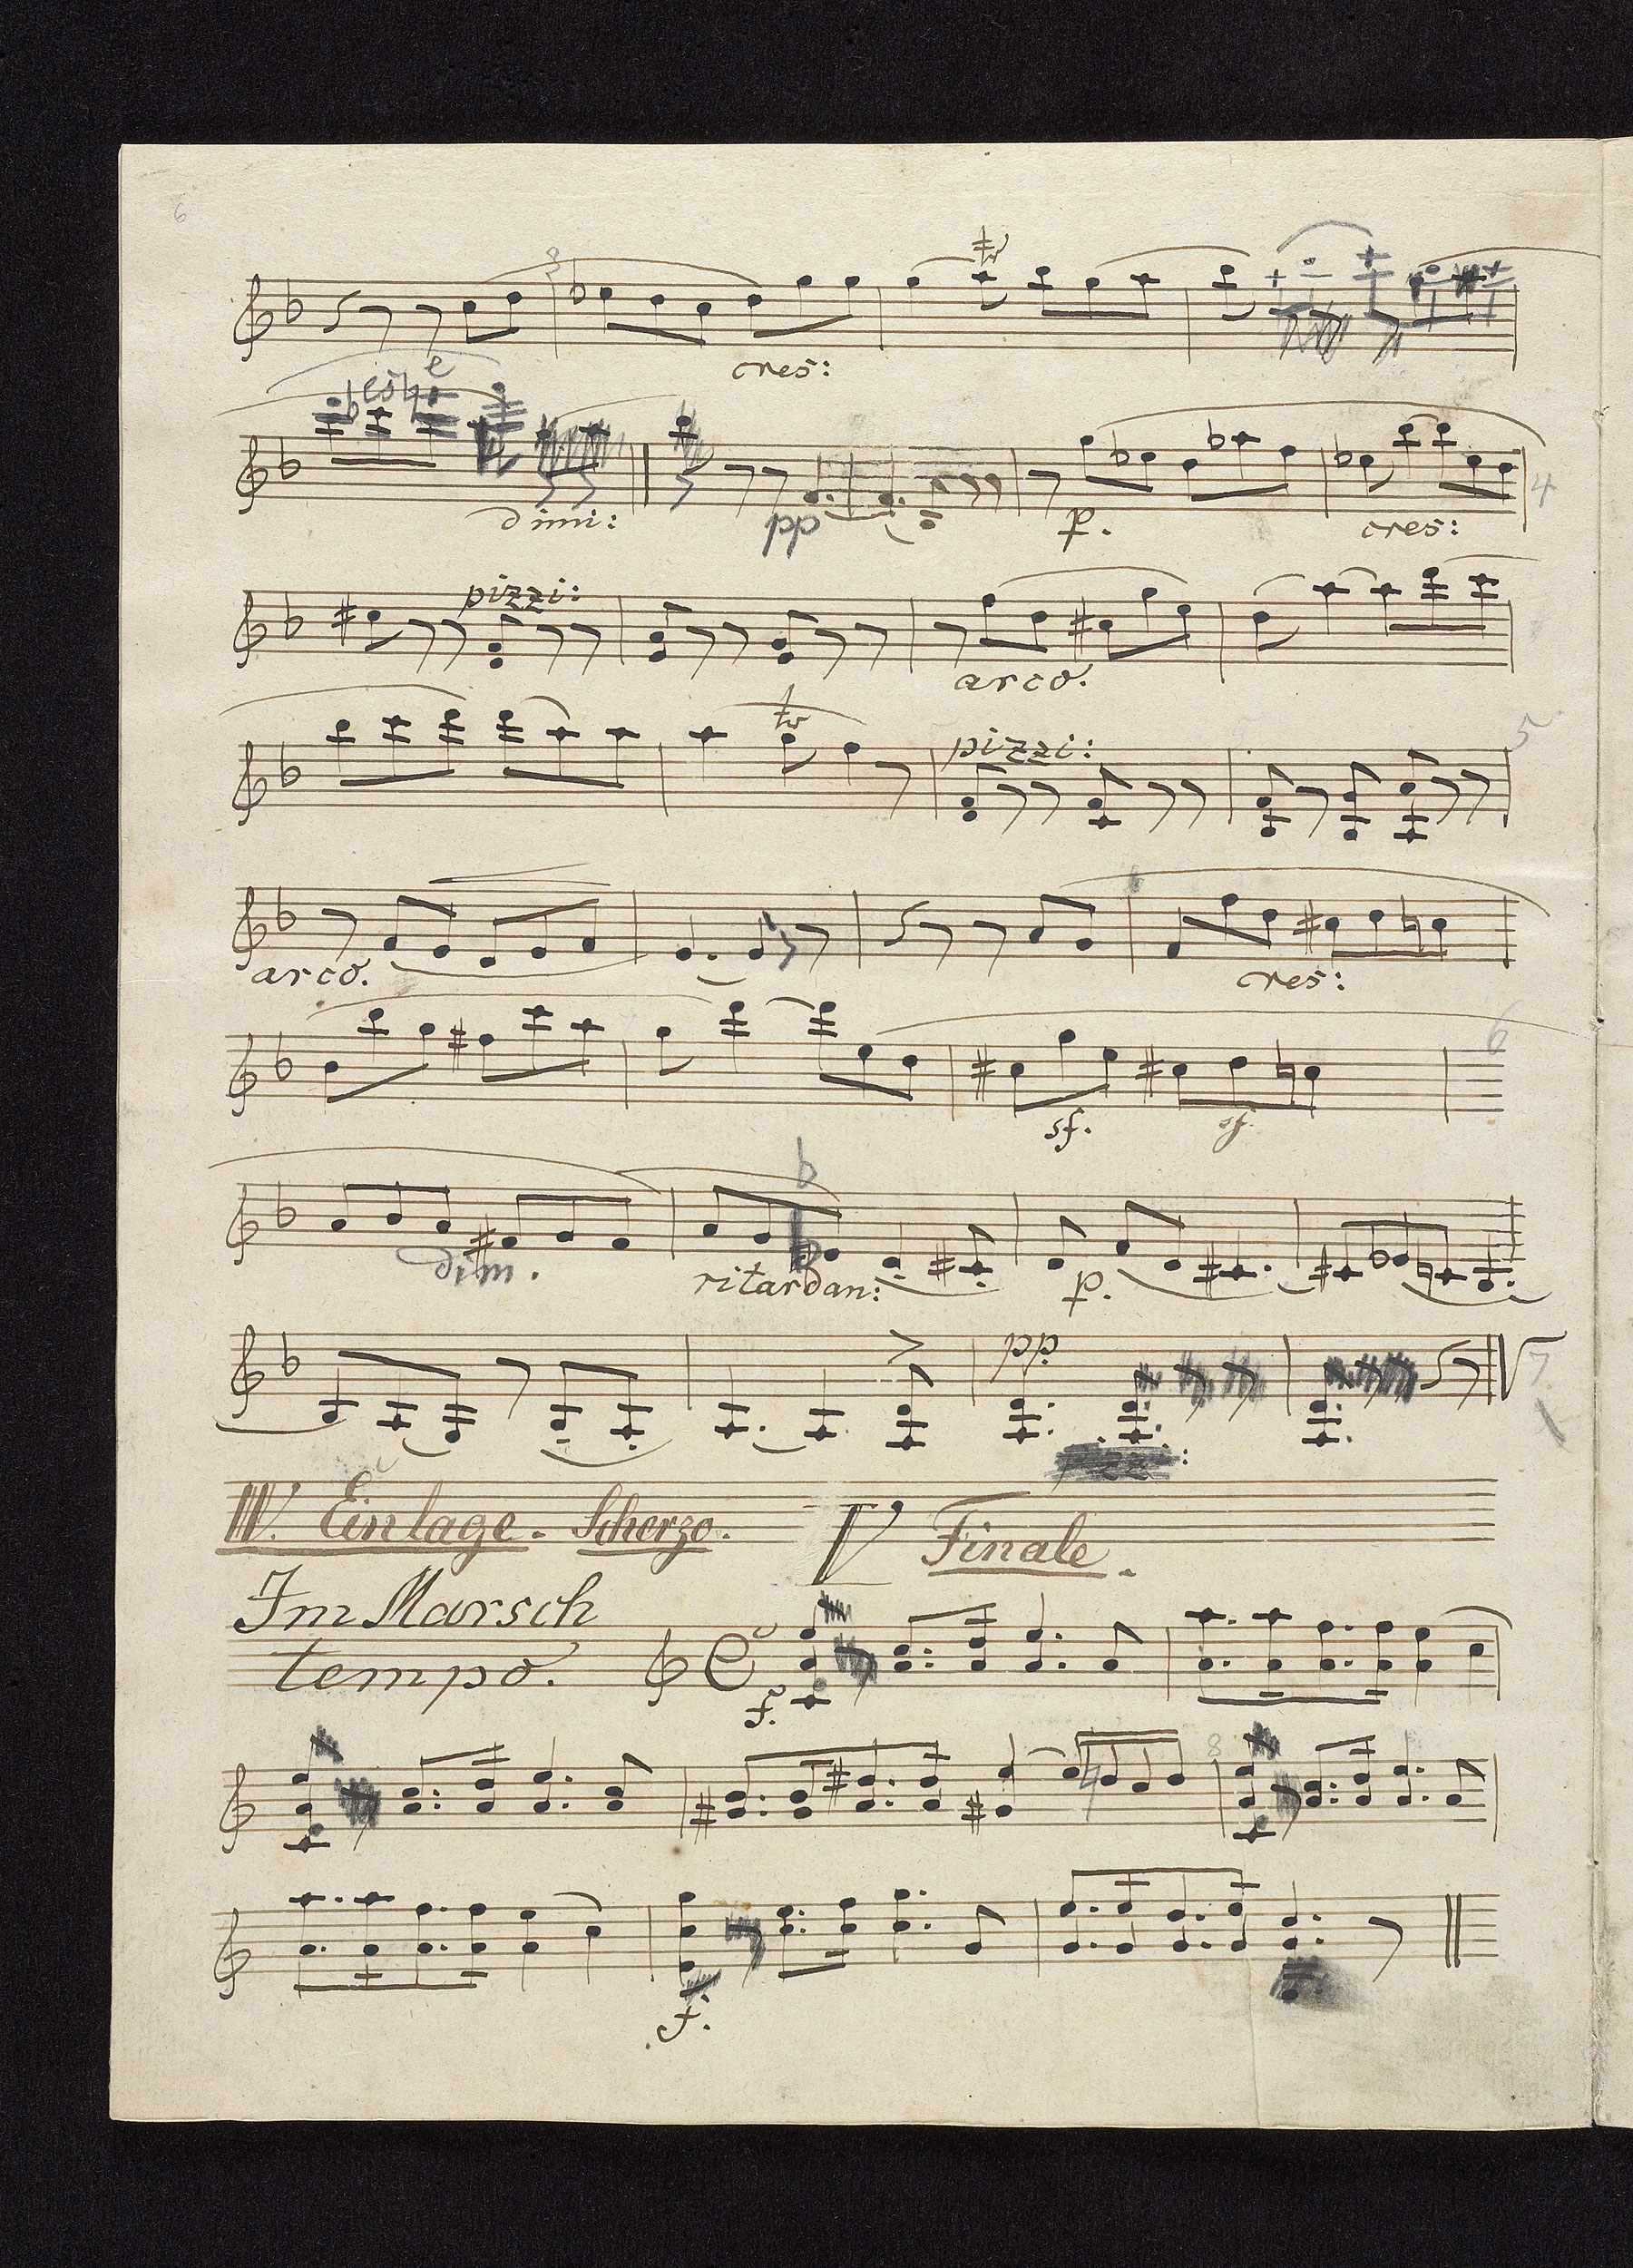 6
3
cres:
es e
dimi: pp p. cres: 4
pizzi:
arco.
tr
pizzi: 5
arco. cres:
6
sf. sf
dim. ritardan: p.
pp
7
IV. Einlage. Scherzo. V Finale.
Im Marsch
tempo. f.
3
f.